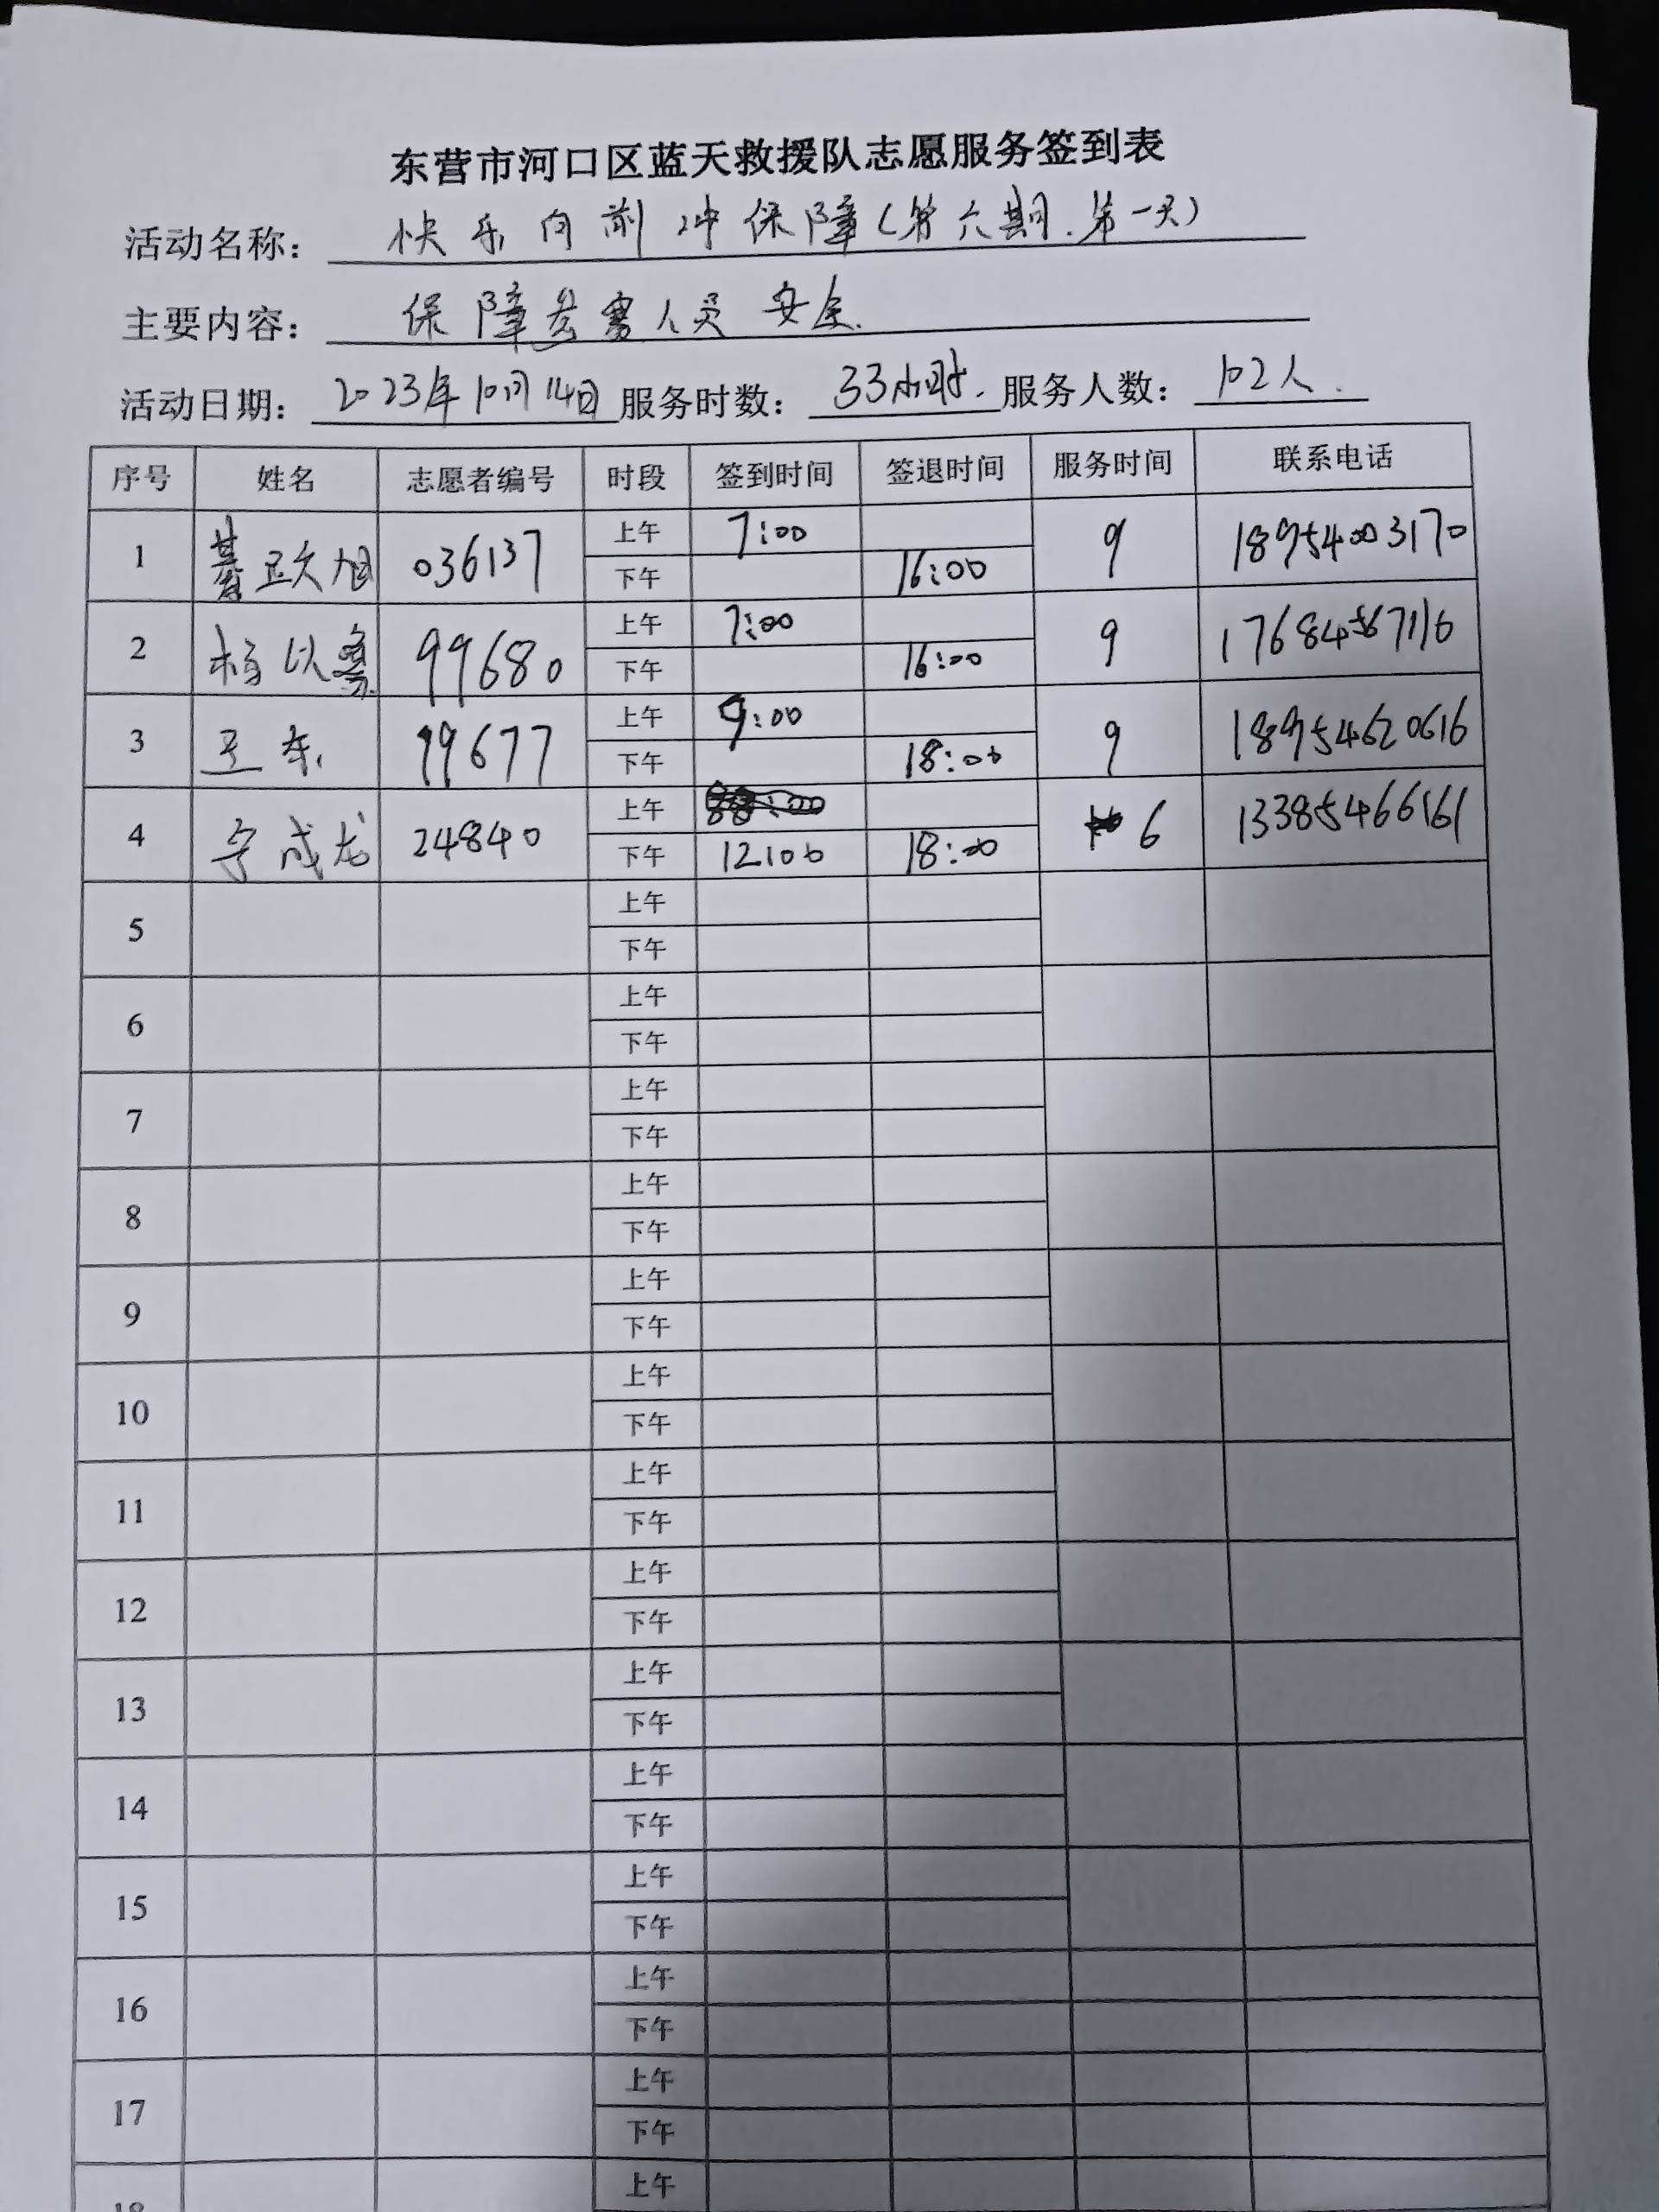 东营市河口区蓝天救援队志愿服务签到表
活动名称: 快乐向前冲保障(第六期.第一天)
主要内容: 保障参赛人员安全.
活动日期: 2023年10月14日 服务时数: 33小时. 服务人数: 102人.
序号 姓名 志愿者编号 时段 签到时间 签退时间 服务时间 联系电话
1 036137 上午 7:00 9 18954003170
下午 16:00
2 杨以 99680 上午 7:00 9
下午 16:00
3 王东 99677 上午 9:00 9 18954620616
下午 18:00
4 成龙 24840 上午 6 13385466161
下午 12:00 18:00
5 上午
下午
6 上午
下午
7 上午
下午
8 上午
下午
9 上午
下午
10 上午
下午
11 上午
下午
12 上午
下午
13 上午
下午
14 上午
下午
15 上午
下午
16 上午
下午
17 上午
下午
18 上午